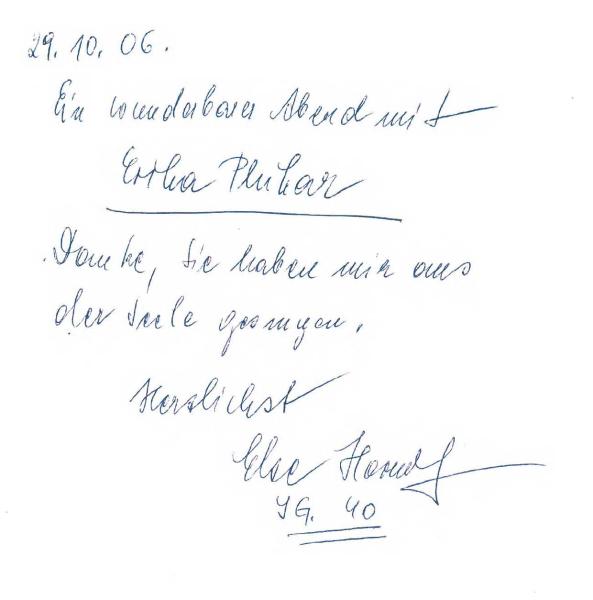 29. 10. 06.
Ein wunderbarer Abend mit
Erika Pluhar
Danke, Sie haben mir aus
der Seele gesungen.
Herzlichst
Else
JG. 40